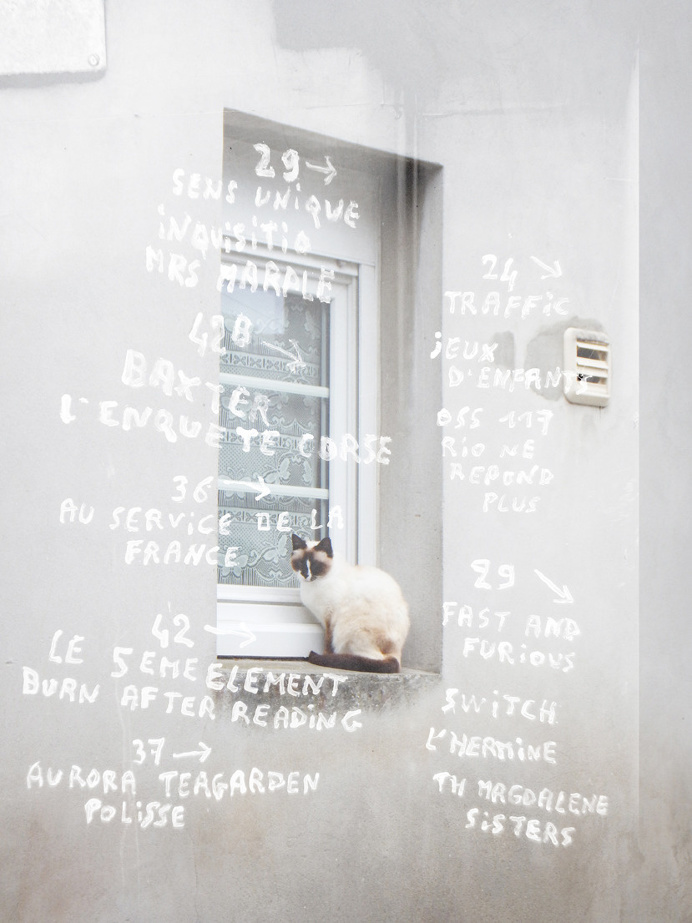 29 →
SENS UNIQUE
INQUISITIO
MRS MARPLE
42B →
BAXTER
L'ENQUETE CORSE
36 →
AU SERVICE DE LA
FRANCE
42 →
LE 5EME ELEMENT
BURN AFTER READING
37 →
AURORA TEAGARDEN
POLISSE
24 ↘
TRAFFIC
JEUX
D'ENFANTS
OSS 117
RIO NE
REPOND
PLUS
29 ↘
FAST AND
FURIOUS
SWITCH
L'HERMINE
TH MAGDALENE
SISTERS